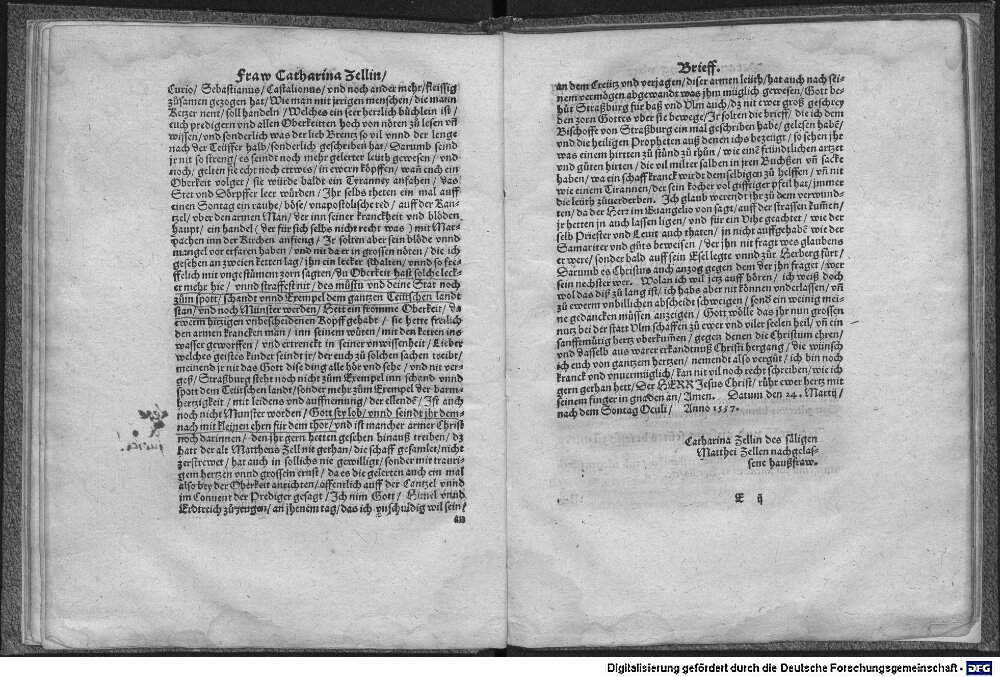 Fraw Catharina Zellin/
Curio/ Sebastianus/ Castalionus/ vnd noch ander mehr/ fleissig
zůsamen gezogen hat/ Wie man mit jrrigen menschen/ die mann
Ketzer nent/ soll handeln/ Welches ein seer herzlich büchlein ist/
euch predigern vnd allen Oberkeitten hoch von nöten zů lesen vñ
wissen/ vnd sonderlich was der lieb Brentz so vil vnnd der lenge
nach der Teüffer halb/ sonderlich geschriben hat/ Darumb seind
jr nit so streng/ es seindt noch mehr gelerter leüth gewesen/ vnd
noch/ gelten sie echt noch ettwes/ in ewern köpffen/ wañ euch ein
Oberkeit volget/ sie würde bald ein Tyranney anfahen/ das
Stet vnd Dörpffer leer würden/ Ihr selbs theten ein mal auff
einen Sontag ein rauhe/ böse/ vnapostolische red/ auff der Can-
tzel/ vber den armen Man/ der inn seiner kranckheit vnd blöden
haupt/ ein handel (der für sich selbs nicht recht was) mit Mar-
pachen inn der Kirchen anfieng/ Ir solten aber sein blöde vnnd
mangel vor erfaren haben/ vnd nit da er in grossen nöten/ die ich
gesehen an zweien ketten lag/ jhn ein lecker schalten/ vnnd so fre-
ffelich mit vngestümem zorn sagten/ Du Oberkeit hast solche leck-
er mehr hie/ vnnd straffest nit/ des můstu vnd deine Stat noch
zům spott/ schandt vnnd Exempel dem gantzen Teütschen landt
stan/ vnd noch Münster werden/ Hett ein fromme Oberkeit/ da
ewerm hitzigen vnbescheidenen Kopff gehabt/ sie hette freilich
den armen krancken man/ inn seinem wüten/ mit den ketten ins
wasser geworffen/ vnd ertrenckt in seiner vnwissenheit/ Lieber
welches geistes kinder seindt jr/ der euch zů solchen sachen treibt/
meinend jr nit das Gott dise ding alle hör vnd sehe/ vnd nit ver-
geß/ Straßburg steht noch nicht zům Exempel inn schend vnnd
spott dem Teütschen landt/ sonder mehr zům Exempel der barm-
hertzigkeit/ mit leidens vnd auffnemung/ der ellenden/ Ist auch
noch nicht Munster worden/ Gott sey lob/ vnnd seindt jhr dem-
nach mit kleinen ehrn für dem thor/ vnd ist mancher armer Christ
noch darinnen/ den jhr gern hetten gesehen hinauß treiben/ dz
hatt der alt Mattheus Zell nit gethan/ die schaff gesamlet/ nicht
zerstrewet/ hat auch in sollichs nie gewilligt/ sonder mit trauri-
gen hertzen vnnd grossem ernst/ da es die gelerten auch ein mal
also bey der Oberkeit anrichten/ öffentlich auff der Cantzel vnnd
im Conuent der Prediger gesagt/ Ich nim Gott/ Himel vnnd
Erdtreich zů zeugen/ an jhenem tag/ das ich vnschuldig wil sein/
an
Brieff.
an dem Creütz vnd verjagen/ diser armen leüth/ hat auch nach sei-
nem vermögen abgewandt was jhm müglich gewesen/ Gott be-
hüt Straßburg für baß vnd Vlm auch/ dz nit ewer groß geschrey
den zorn Gottes vber sie bewege/ Ir solten die brieff/ die ich dem
Bischoff von Straßburg ein mal geschriben habe/ gelesen habẽ/
vnd die heiligen Propheten auß denen ichs bezeügt/ so sehen jhr
was einem hirtten zů stünd zů thůn/ wie einẽ fründtlichen artzet
vnd güten hirten/ die vil milter salben in jren Buchßen vñ sacke
haben/ wa ein schaff kranck wurdt demselbigen zů helffen/ vñ nit
wie einem Tirannen/ der sein kocher vol gifftiger pfeil hat/ jmmer
die leüth zůuerderben. Ich glaub werendt jhr zů dem verwund-
ten/ da der Herr im Euangelio von sagt/ auff der strassen kum̃en/
jr hetten jn auch lassen ligen/ vnd für ein Vihe geachtet/ wie der
selb Priester vnd Leuit auch thaten/ jn nicht auffgehabẽ wie der
Samariter vnd güts beweisen/ der jhn nit fragt wes glaubens
er were/ sonder bald auff sein Esel legte vnnd zůr Herberg fürt/
Darumb es Christus auch anzog gegen dem der jhn fraget/ wer
sein nechster wer. Wolan ich wil jetz auff hören/ ich weiß doch
wol das diß zů lang ist/ ich habs aber nit können vnderlassen/ vñ
zů ewerm vnbillichen abscheidt schweigen/ send ein weinig mei-
ne gedancken müssen anzeigen/ Gott wölle das jhr nun grossen
nutz bei der statt Vlm schaffen zů ewer vnd viler seelen heil/ vñ ein
sanfftmütig hertz vberkum̃en/ gegen denen die Christum ehren/
vnd dasselb aus warer erkandtnuß Christi hergang/ die wünsch
ich euch von gantzem hertzen/ nemendt also vergůt/ ich bin noch
kranck vnd vnuermüglich/ kan nit vil noch recht schreiben/ wie ich
gern gethan hett/ Der HERR Jesus Christ/ růhr ewer hertz mit
seinem finger in gnaden an/ Amen. Datum den 24. Martij/
nach dem Sontag Oculi/ Anno 1557.
Catharina Zellin des säligen
Matthei Zellen nachgelas-
sene haußfraw.
E ij
Digitalisierung gefördert durch die Deutsche Forschungsgemeinschaft - DFG